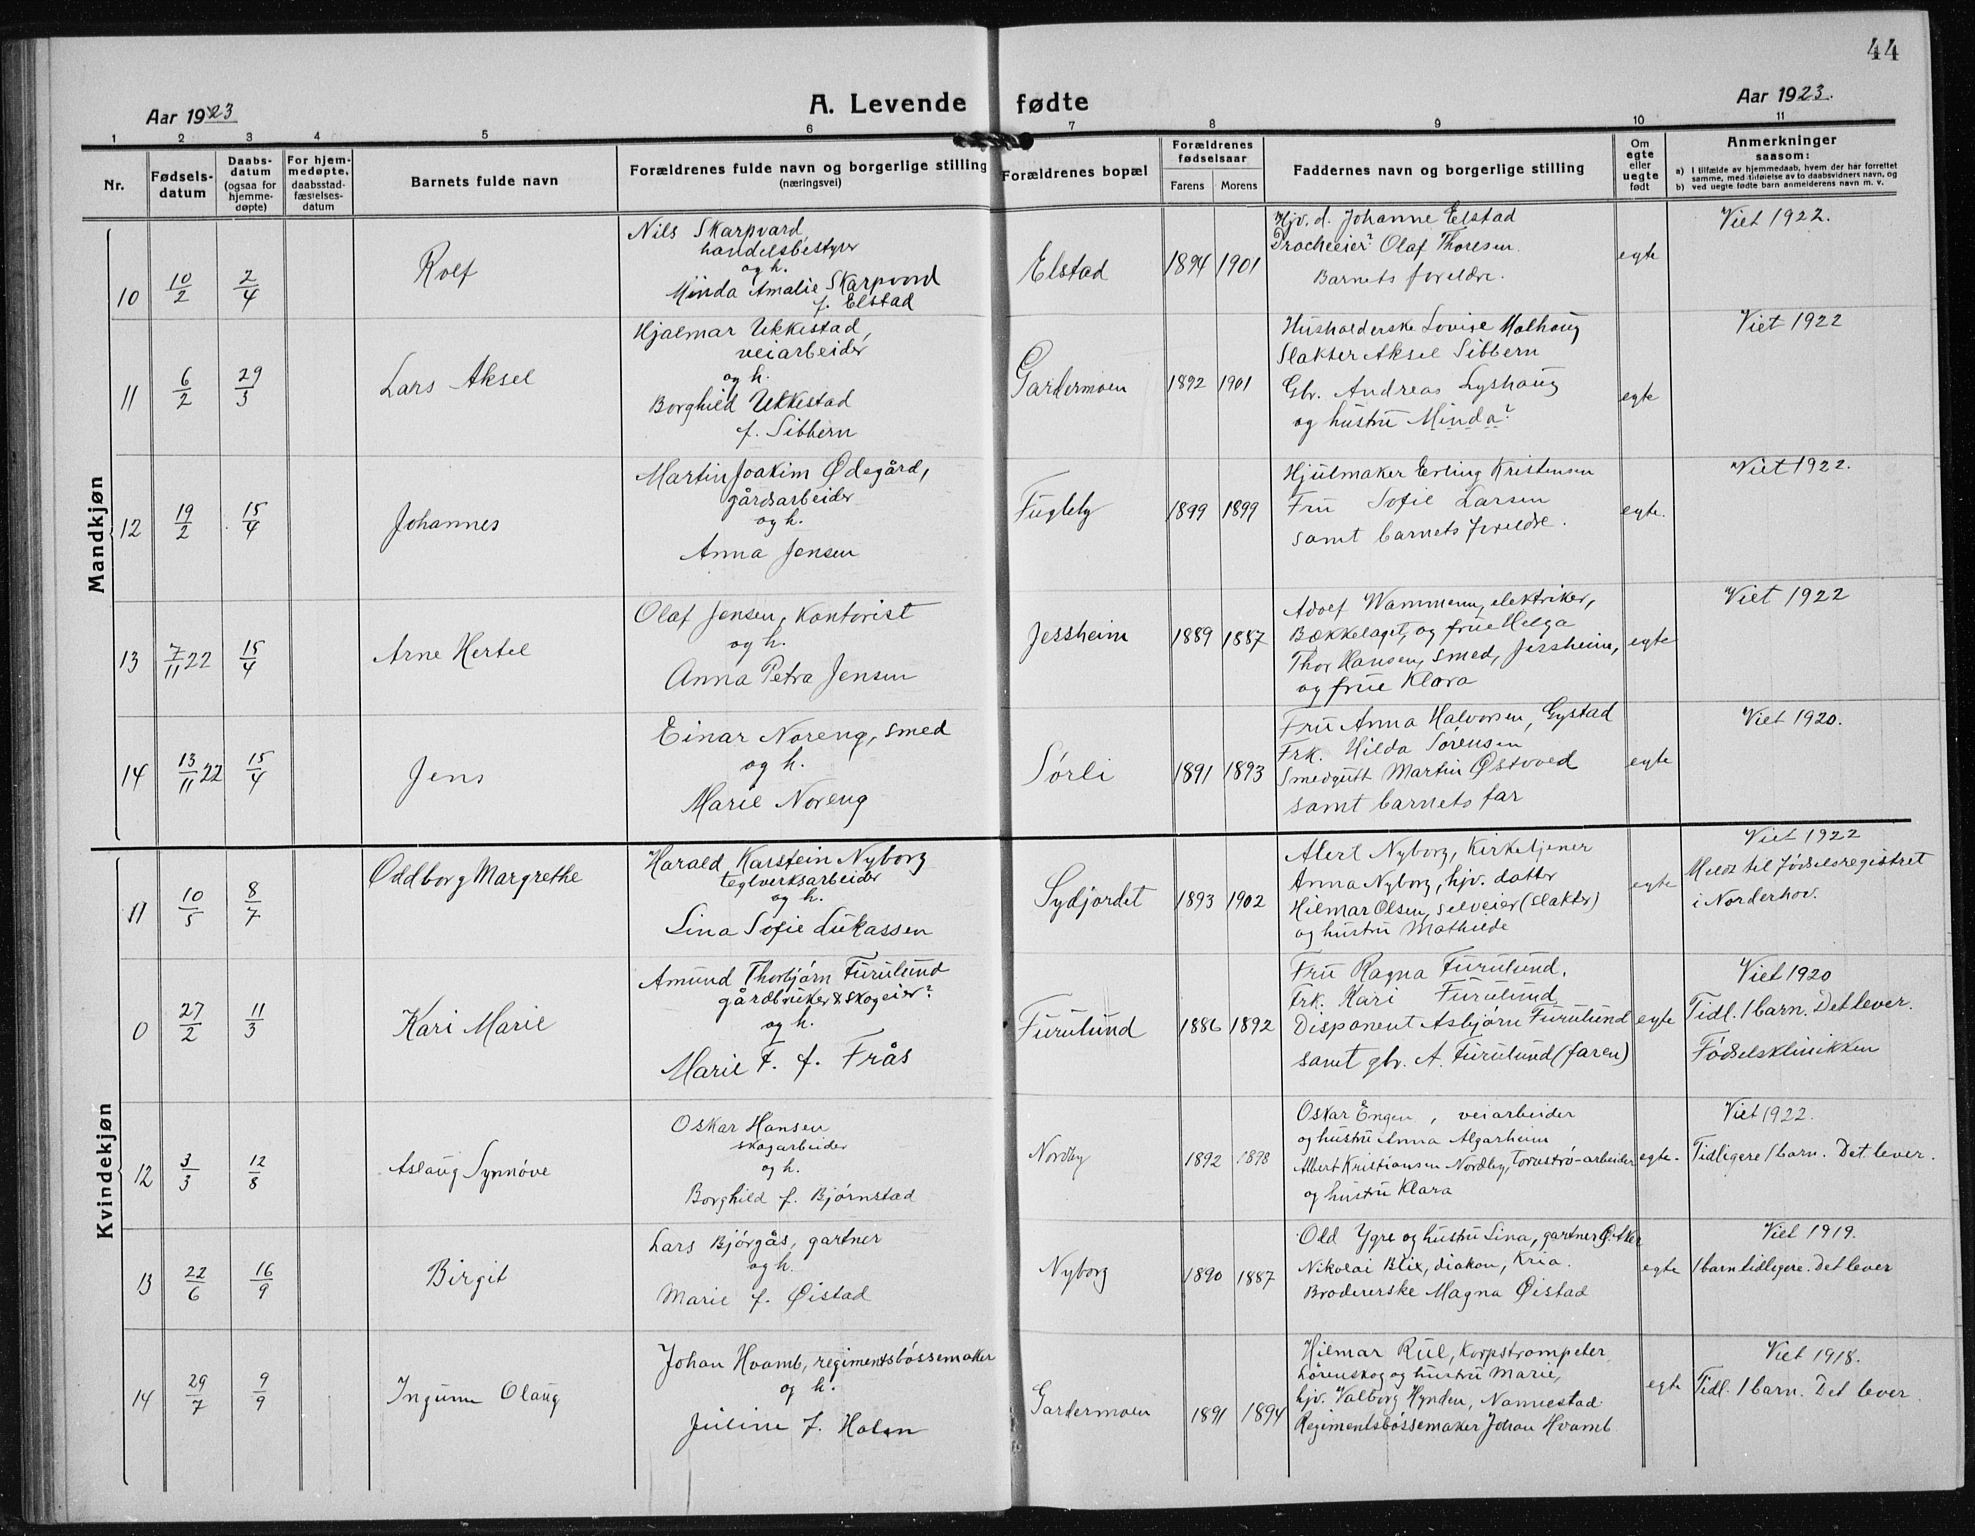 44
Aar 1923
A. Levende fødte
Aar 1923.
1 2 3 4 5 6 7 8 9 10 11
Nr.
Fødsels-
datum
Daabs-
datum
(ogsaa for
hjemme-
døpte)
For hjem-
medøpte,
daabsstad-
fæstelses-
datum
Barnets fulde navn
Forældrenes fulde navn og borgerlige stilling
(næringsvei)
Forældrenes bopæl
Forældrenes
fødselsaar
Farens Morens
Faddernes navn og borgerlige stilling
Om
egte
eller
uegte
født
Anmerkninger
saasom:
a) I tilfælde av hjemmedaab, hvem der har forrettet
samme, med tilføielse av to daabsvidners navn, og
b) ved uegte fødte barn anmelderens navn m. v.
Mandkjøn
10 10/2 2/4
Rolf
Nils Skarpvord
handelsbestyrer
og h.
Minda Amalie Skarpvord
f. Elstad
Elstad
1894 1901
Hjv. d. Johanne Elstad
Olaf Thoresen.
Barnets foreldre.
egte
Viet 1922.
11 6/2 29/3
Lars Aksel
Hjalmar Ukkestad,
veiarbeider
og h.
Borghild Ukkestad
f. Sibbern
Gardermoen
1892 1901
Husholderske Lovise Molhaug
Slakter Aksel Sibbern
Gbr. Andreas Lyshaug
og hustru Minda?
egte
Viet 1922
12 19/2 15/4
Johannes
Martin Joakim Ødegård,
gårdsarbeider
og h.
Anna Jensen
Fugleby
1899 1899
Hjulmaker Erling Kristensen
Fru Sofie Larsen
samt barnets foreldre.
egte.
Viet 1922.
13 7/11 22 15/4
Arne Hertel
Olaf Jensen, kontorist
og h.
Anna Petra Jensen
Jessheim
1889 1887
Adolf Wammenn, elektriker,
Bækkelaget, og frue Helga
Thor Hansen, smed, Jessheim,
og frue Klara
egte
Viet 1922
14 13/11 22 15/4
Jens
Einar Noreng, smed
og h.
Marie Noreng
Sørli
1891 1893
Fru Anna Halvorsen, Gystad
Frk. Hilda Sørensen
Smedgutt Martin Østvoed
samt barnets far
egte
Viet 1920.
Kvindekjøn
11 10/5 8/7
Oddborg Margrethe
Harald Karstein Nyborg
teglverksarbeider
og h.
Lina Sofie Lukassen
Sydjordet
1893 1902
Alert Nyborg, Kirketjener
Anna Nyborg, hjv. datter
Hilmar Olsen, selveier (slakter)
og hustru Mathilde
egte
Viet 1922
Meldt til Fødselsregistret
i Norderhov.
0 27/2 11/3
Kari Marie
Amund Thorbjørn Furulund
gårdbruker & skogeier?
og h.
Marie F. f. Frås
Furulund
1886 1892
Fru Ragna Furulund,
Frk. Kari Furulund
Disponent Asbjørn Furulund
samt gbr. A. Furulund (faren)
egte
Viet 1920
Tidl. 1 barn. Det lever.
Fødselsklinikken
12 3/3 12/8
Aslaug Synnøve
Oskar Hansen
skogarbeider
og h.
Borghild f. Bjørnstad
Nordby
1892 1898
Oskar Engen, veiarbeider
og hustru Anna Algarheim
Albert Kristiansen Nordby, torvstrø-arbeider
og hustru Klara
egte.
Viet 1922.
Tidligere 1 barn. Det lever.
13 22/6 16/9
Birgit
Lars Bjørgås, gartner
og h.
Marie f. Øistad
Nyborg
1890 1887
Odd Ygre og hustru Lina, gartner
Nikolai Blix, diakon, Kria.
Brodererske Magna Øistad
egte
Viet 1919.
1 barn tidligere. Det lever
14 29/7 9/9
Ingunn Olaug
Johan Hvamb, regimentsbøssemaker
og h.
Juline f. Holen
Gardermoen
1891 1894
Hilmar Rul, korpstrompeter
Lørenskog og hustru Marie,
hjv. Valborg Hynden, Nannestad
Regimentsbøssemaker Johan Hvamb
egte
Viet 1918.
Tidl. 1 barn. Det lever.